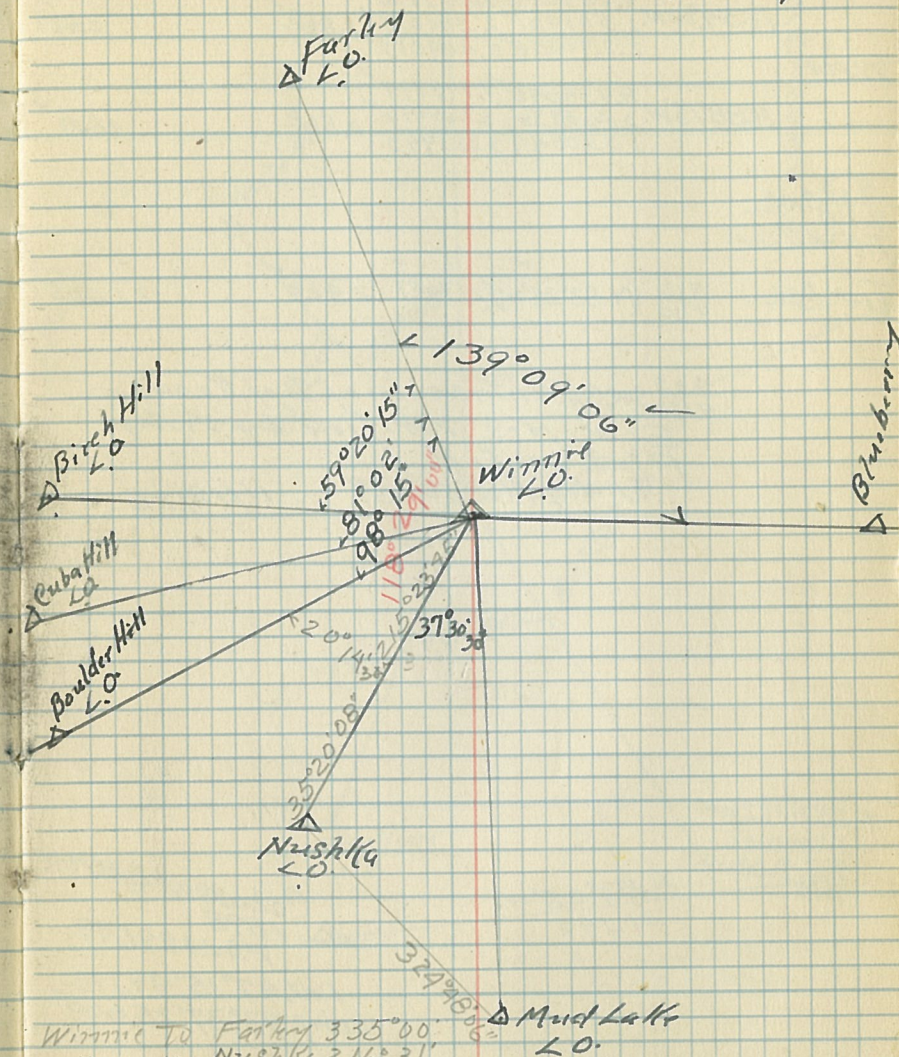 Farley
L.O.
139° 09' 06"
Birch Hill
L.O.
59° 20' 15"
81° 02'
98° 15'
118° 29' 00"
Winnie
L.O.
Blueberry
Cuba Hill
L.O.
Boulder Hill
L.O.
20° 14'
215° 23' 48"
37° 30' 30"
35° 20' 08"
Nushka
L.O.
324° 48' 06"
Mud Lake
L.O.
Winnie To Farley 335° 00'